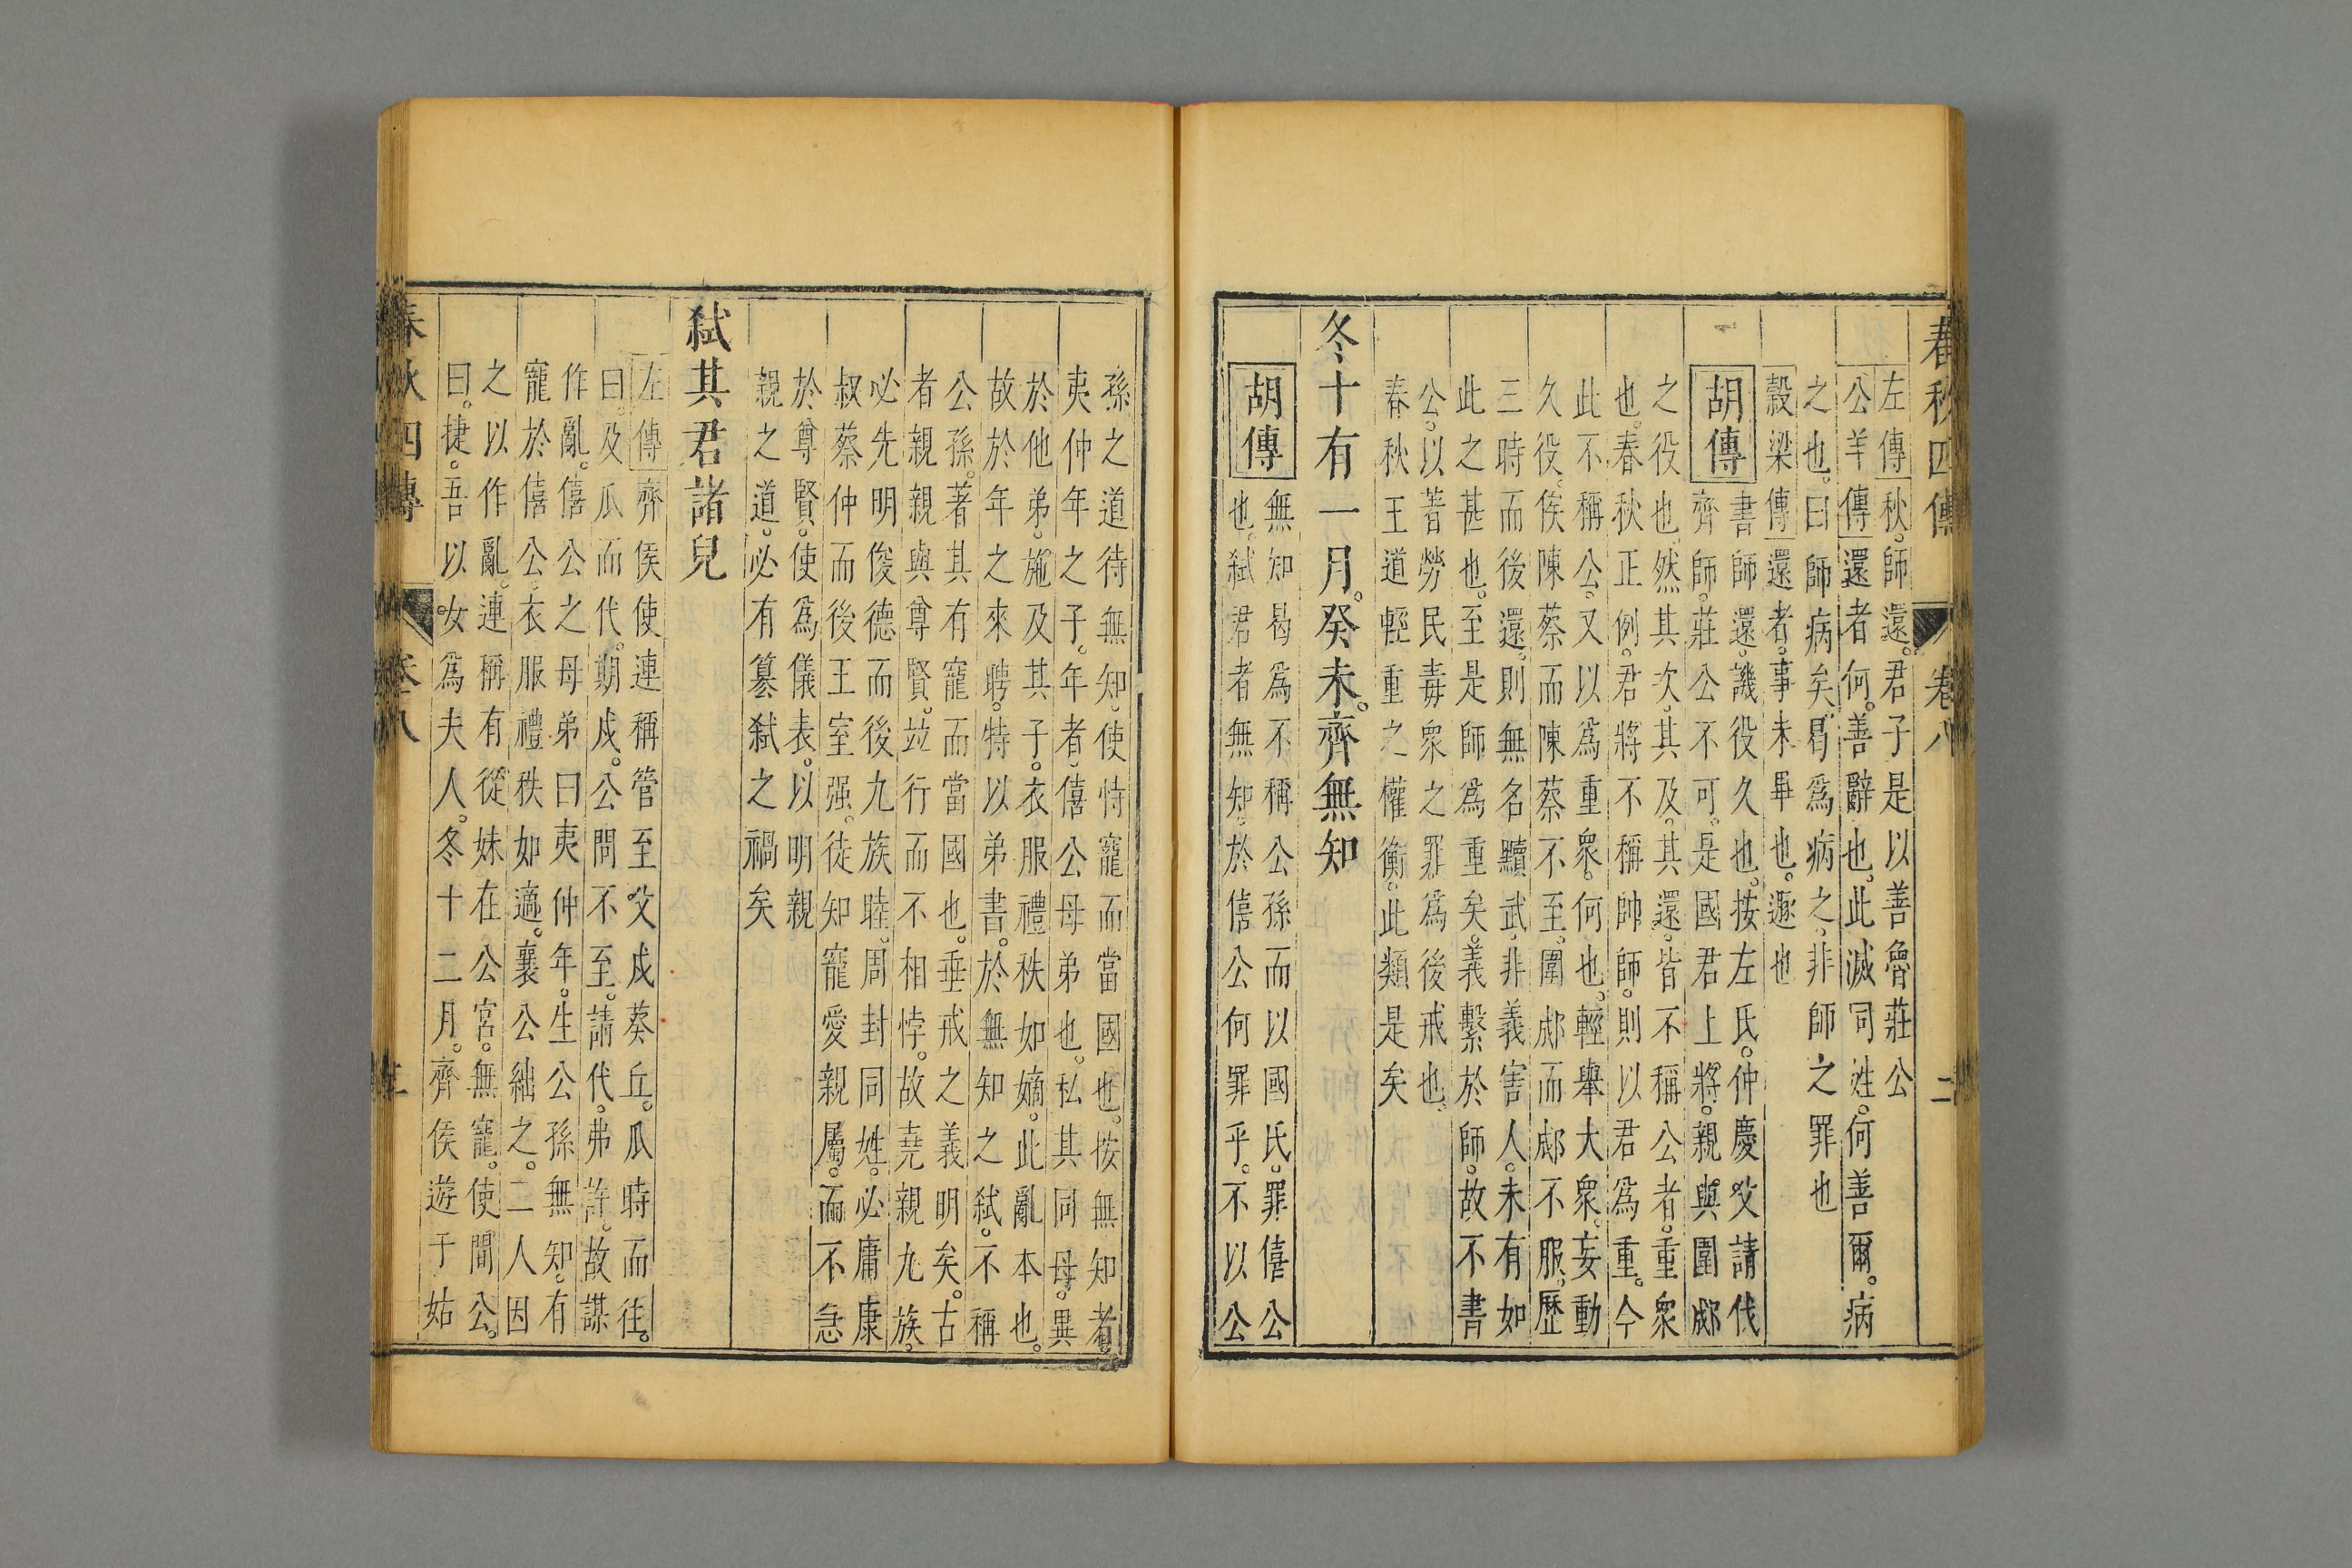 春秋四傳 卷八 二
左傳秋。師還。君子是以善魯莊公
公羊傳還者何。善辭也。此滅同姓。何善爾。病
之也。曰師病矣。曷爲病之。非師之罪也
穀梁傳還者。事未畢也。遯也
胡傳
書師還。譏役久也。按左氏。仲慶父請伐
齊師。莊公不可。是國君上將。親與圍郕
之役也。然其次。其及。其還。皆不稱公者。重衆
也。春秋正例。君將不稱帥師。則以君爲重。今
此不稱公。又以爲重衆。何也。輕舉大衆。妄動
久役。俟陳蔡而陳蔡不至。圍郕而郕不服。歷
三時而後還。則無名黷武。非義害人。未有如
此之甚也。至是師爲重矣。義繫於師。故不書
公。以著勞民毒衆之罪。爲後戒也。
春秋王道輕重之權衡。此類是矣
冬十有一月。癸未。齊無知
胡傳
無知曷爲不稱公孫而以國氏。罪僖公
也。弑君者無知。於僖公何罪乎。不以公
孫之道待無知。使恃寵而當國也。按無知者。
夷仲年之子。年者。僖公母弟也。私其同母。異
於他弟。施及其子。衣服禮秩如嫡。此亂本也。
故於年之來聘。特以弟書。於無知之弑。不稱
公孫。著其有寵而當國也。垂戒之義明矣。古
者親親與尊賢。竝行而不相悖。故堯親九族。
必先明俊德而後九族睦。周封同姓。必庸康
叔蔡仲而後王室强。徒知寵愛親屬。而不急
於尊賢。使爲儀表。以明親
親之道。必有篡弑之禍矣
弑其君諸兒
左傳齊侯使連稱管至父戍葵丘。瓜時而往。
曰。及瓜而代。期戍。公問不至。請代。弗許。故謀
作亂。僖公之母弟曰夷仲年。生公孫無知。有
寵於僖公。衣服禮秩如適。襄公絀之。二人因
之以作亂。連稱有從妹在公宮。無寵。使間公。
曰。捷。吾以女爲夫人。冬十二月。齊侯遊于姑
春秋四傳 卷八 二